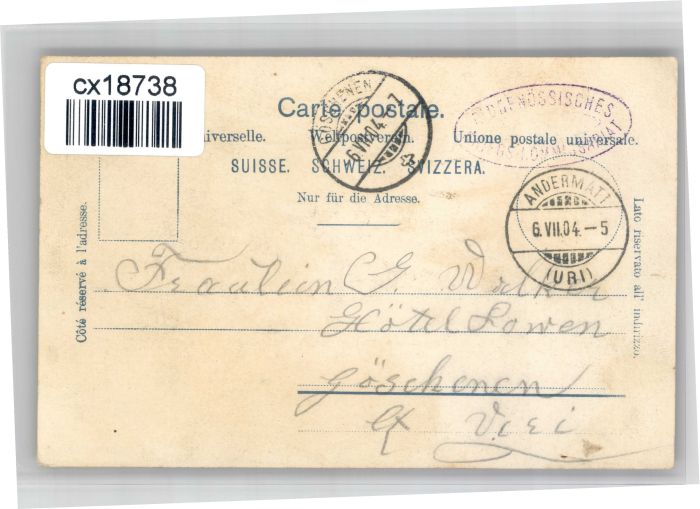 cx18738
Carte postale.
iverselle. Weltpostverein. Unione postale universale.
SUISSE. SCHWEIZ. SVIZZERA.
Nur für die Adresse.
Côté réservé à l'adresse.
Lato riservato all' indirizzo.
GÖSCHENEN
6.VII.04.-7
EIDGENÖSSISCHES
ANDERMATT
6.VII.04.-5
(URI)
Fräulein G. Walker
Hôtel Löwen
Göschenen
Ct Uri